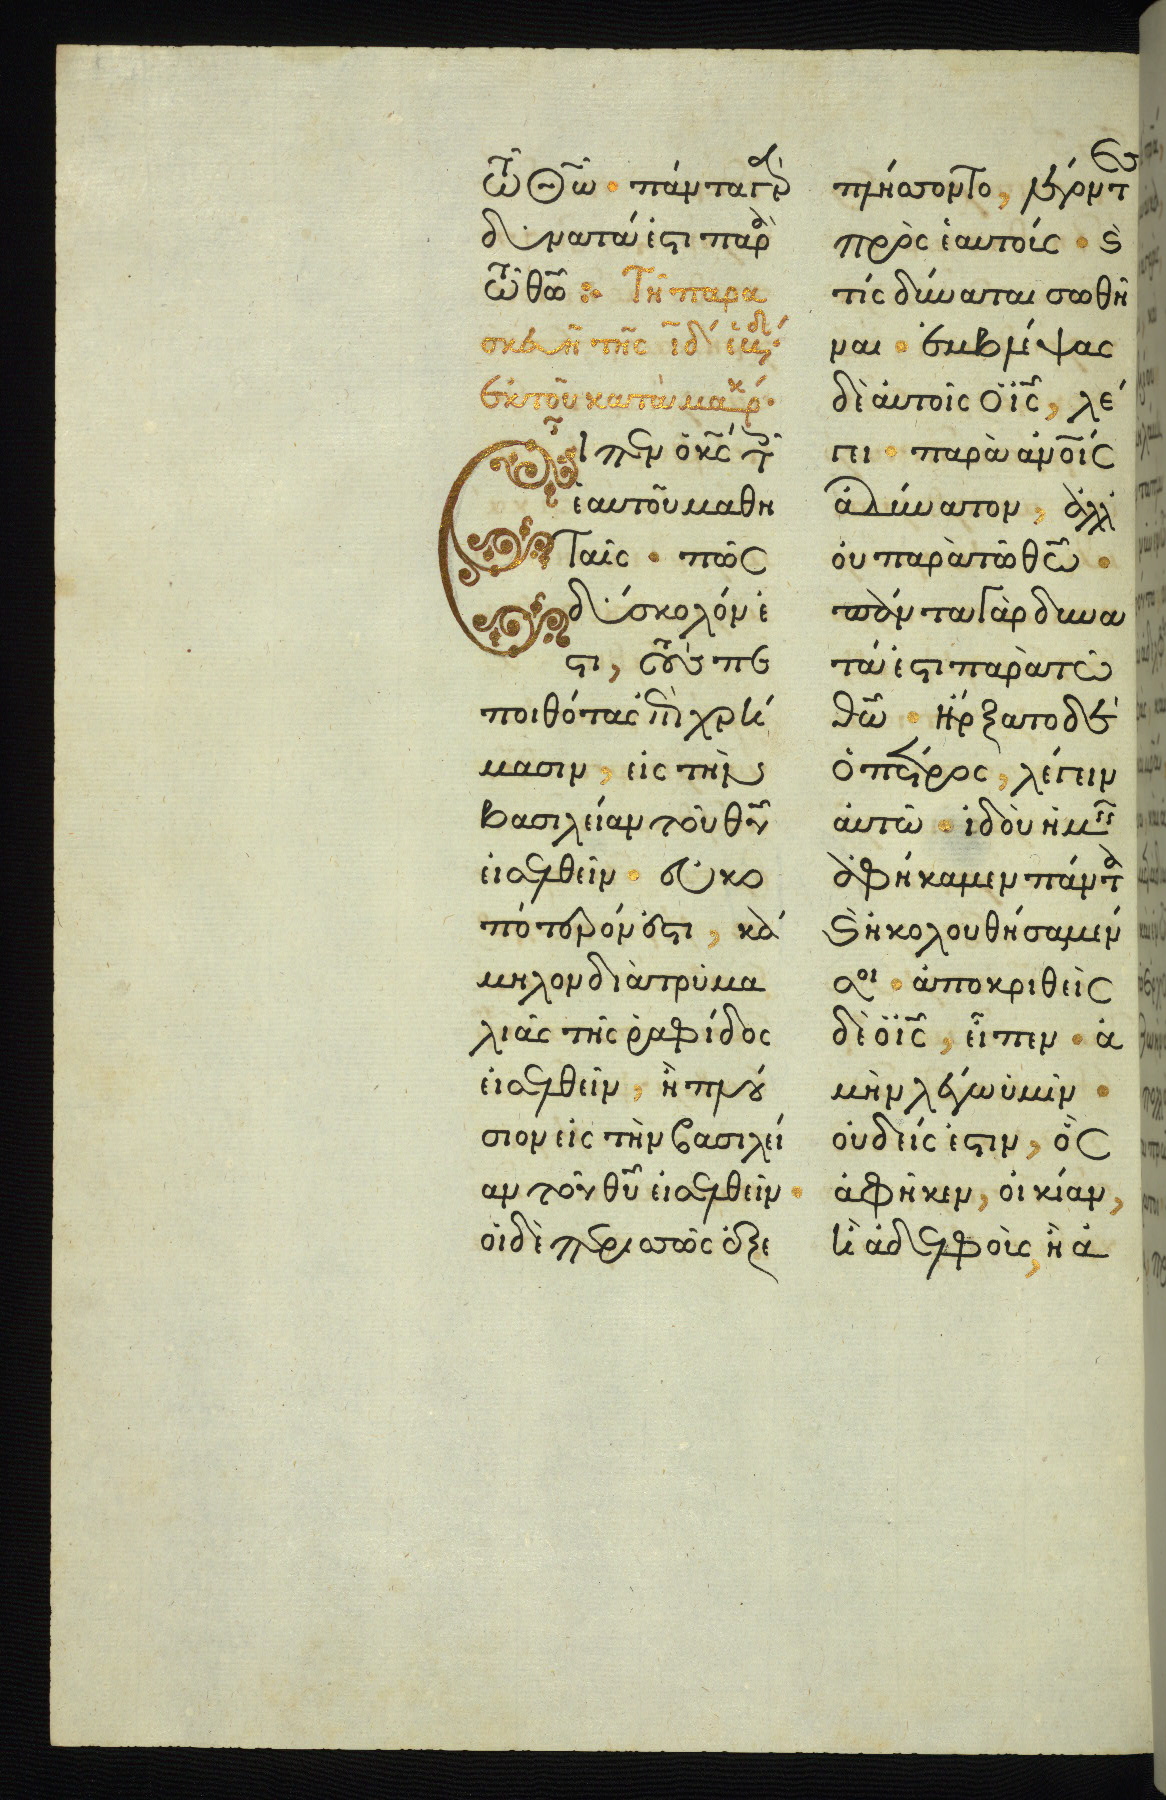 τῶ Θῶ · πάντα γὰρ
δυνατά ἐστι παρὰ
τῶ θῶ ⁘ Τῆ παρα
σκευῆ τῆς ῑδ ἑβδ
ἐκ τοῦ κατὰ μάρκ ·
Εἶπεν ὁ κς τοῖς
ἑαυτοῦ μαθη
ταῖς · πῶς
δύσκολόν ἐ
στι, τοὺς πε
ποιθότας ἐπὶ χρή
μασιν, εἰς τὴν
βασιλείαν τοῦ θυ
εἰσελθεῖν · εὐκο
πότερόν ἐστι, κά
μηλον διὰ τρυμα
λιᾶς τῆς ῥαφίδος
εἰσελθεῖν, ἢ πλού
σιον εἰς τὴν βασιλεί
αν τοῦ θυ εἰσελθεῖν ·
οἱ δὲ περισσῶς ἐξε
πλήσσοντο, λέγοντες
πρὸς ἑαυτούς · καὶ
τίς δύναται σωθῆ
ναι · ἐμβλέψας
δὲ αὐτοῖς ὁ ις, λέ
γει · παρὰ ἀνοις
ἀδύνατον, ἀλλ
οὐ παρὰ τῶ θῶ ·
πάντα γὰρ δυνα
τά ἐστι παρὰ τῶ
θῶ · ἤρξατο δὲ
ὁ πέτρος, λέγειν
αὐτῶ · ἰδοὺ ἡμεῖς
ἀφήκαμεν πάντα
καὶ ἠκολουθήσαμέν
σοι · ἀποκριθεὶς
δὲ ὁ ις, εἶπεν · ἀ
μὴν λέγω ὑμῖν ·
οὐδείς ἐστιν, ὃς
ἀφῆκεν, οἰκίαν,
ἢ ἀδελφοὺς, ἢ ἀ